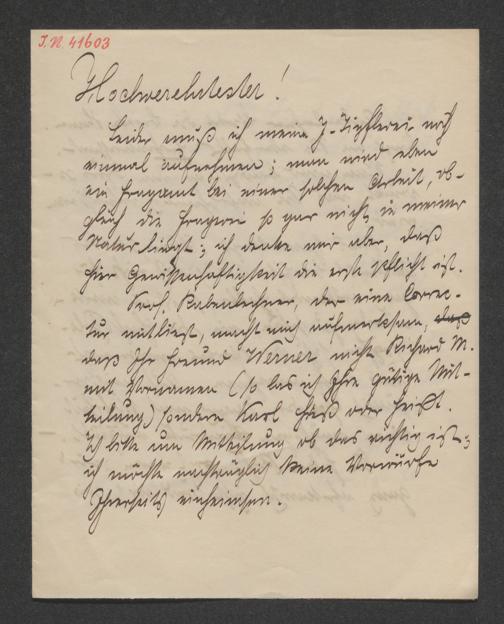 I.N. 41603
Hochverehrtester!
Leider muß ich meine J-Tüpflerei noch
einmal aufnehmen; man wird eben
ein Fragamt bei einer solchen Arbeit, ob-
gleich die Fragerei so gar nicht in meiner
Natur liegt; ich denke mir aber, daß
hier Gewissenhaftigkeit die erste Pflicht ist.
Prof. Rabenlechner, der eine Correc-
tur mitliest, macht mich aufmerksam,
daß Ihr Freund Werner nicht Richard M.
mit Vornamen (so las ich Ihre gütige Mit-
teilung) sondern Karl hieß oder heißt.
Ich bitte um Mitteilung ob das richtig ist;
ich möchte nachträglich keine Vorwürfe
Ihrerseits einheimsen.